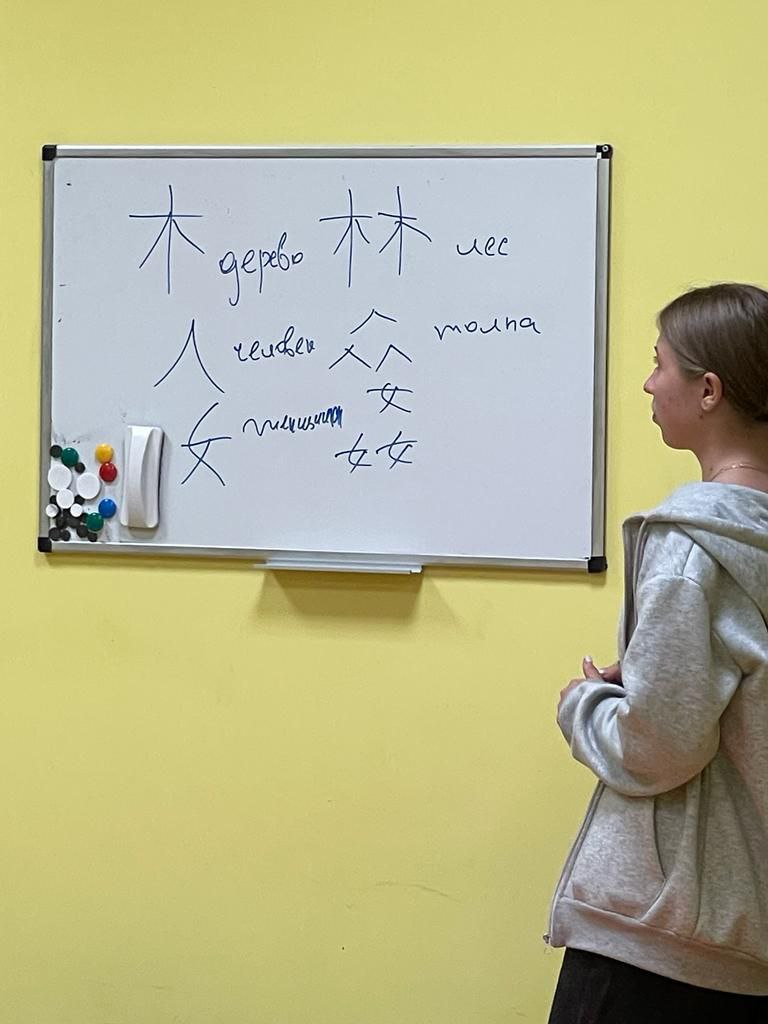 木 дерево 林 лес
人 человек 众 толпа
女 женщина 姦